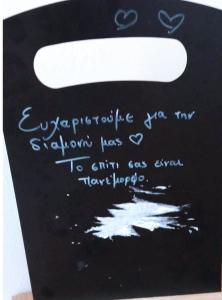 Ευχαριστούμε για την
διαμονή μας ♡
Το σπίτι σας είναι
πανέμορφο.